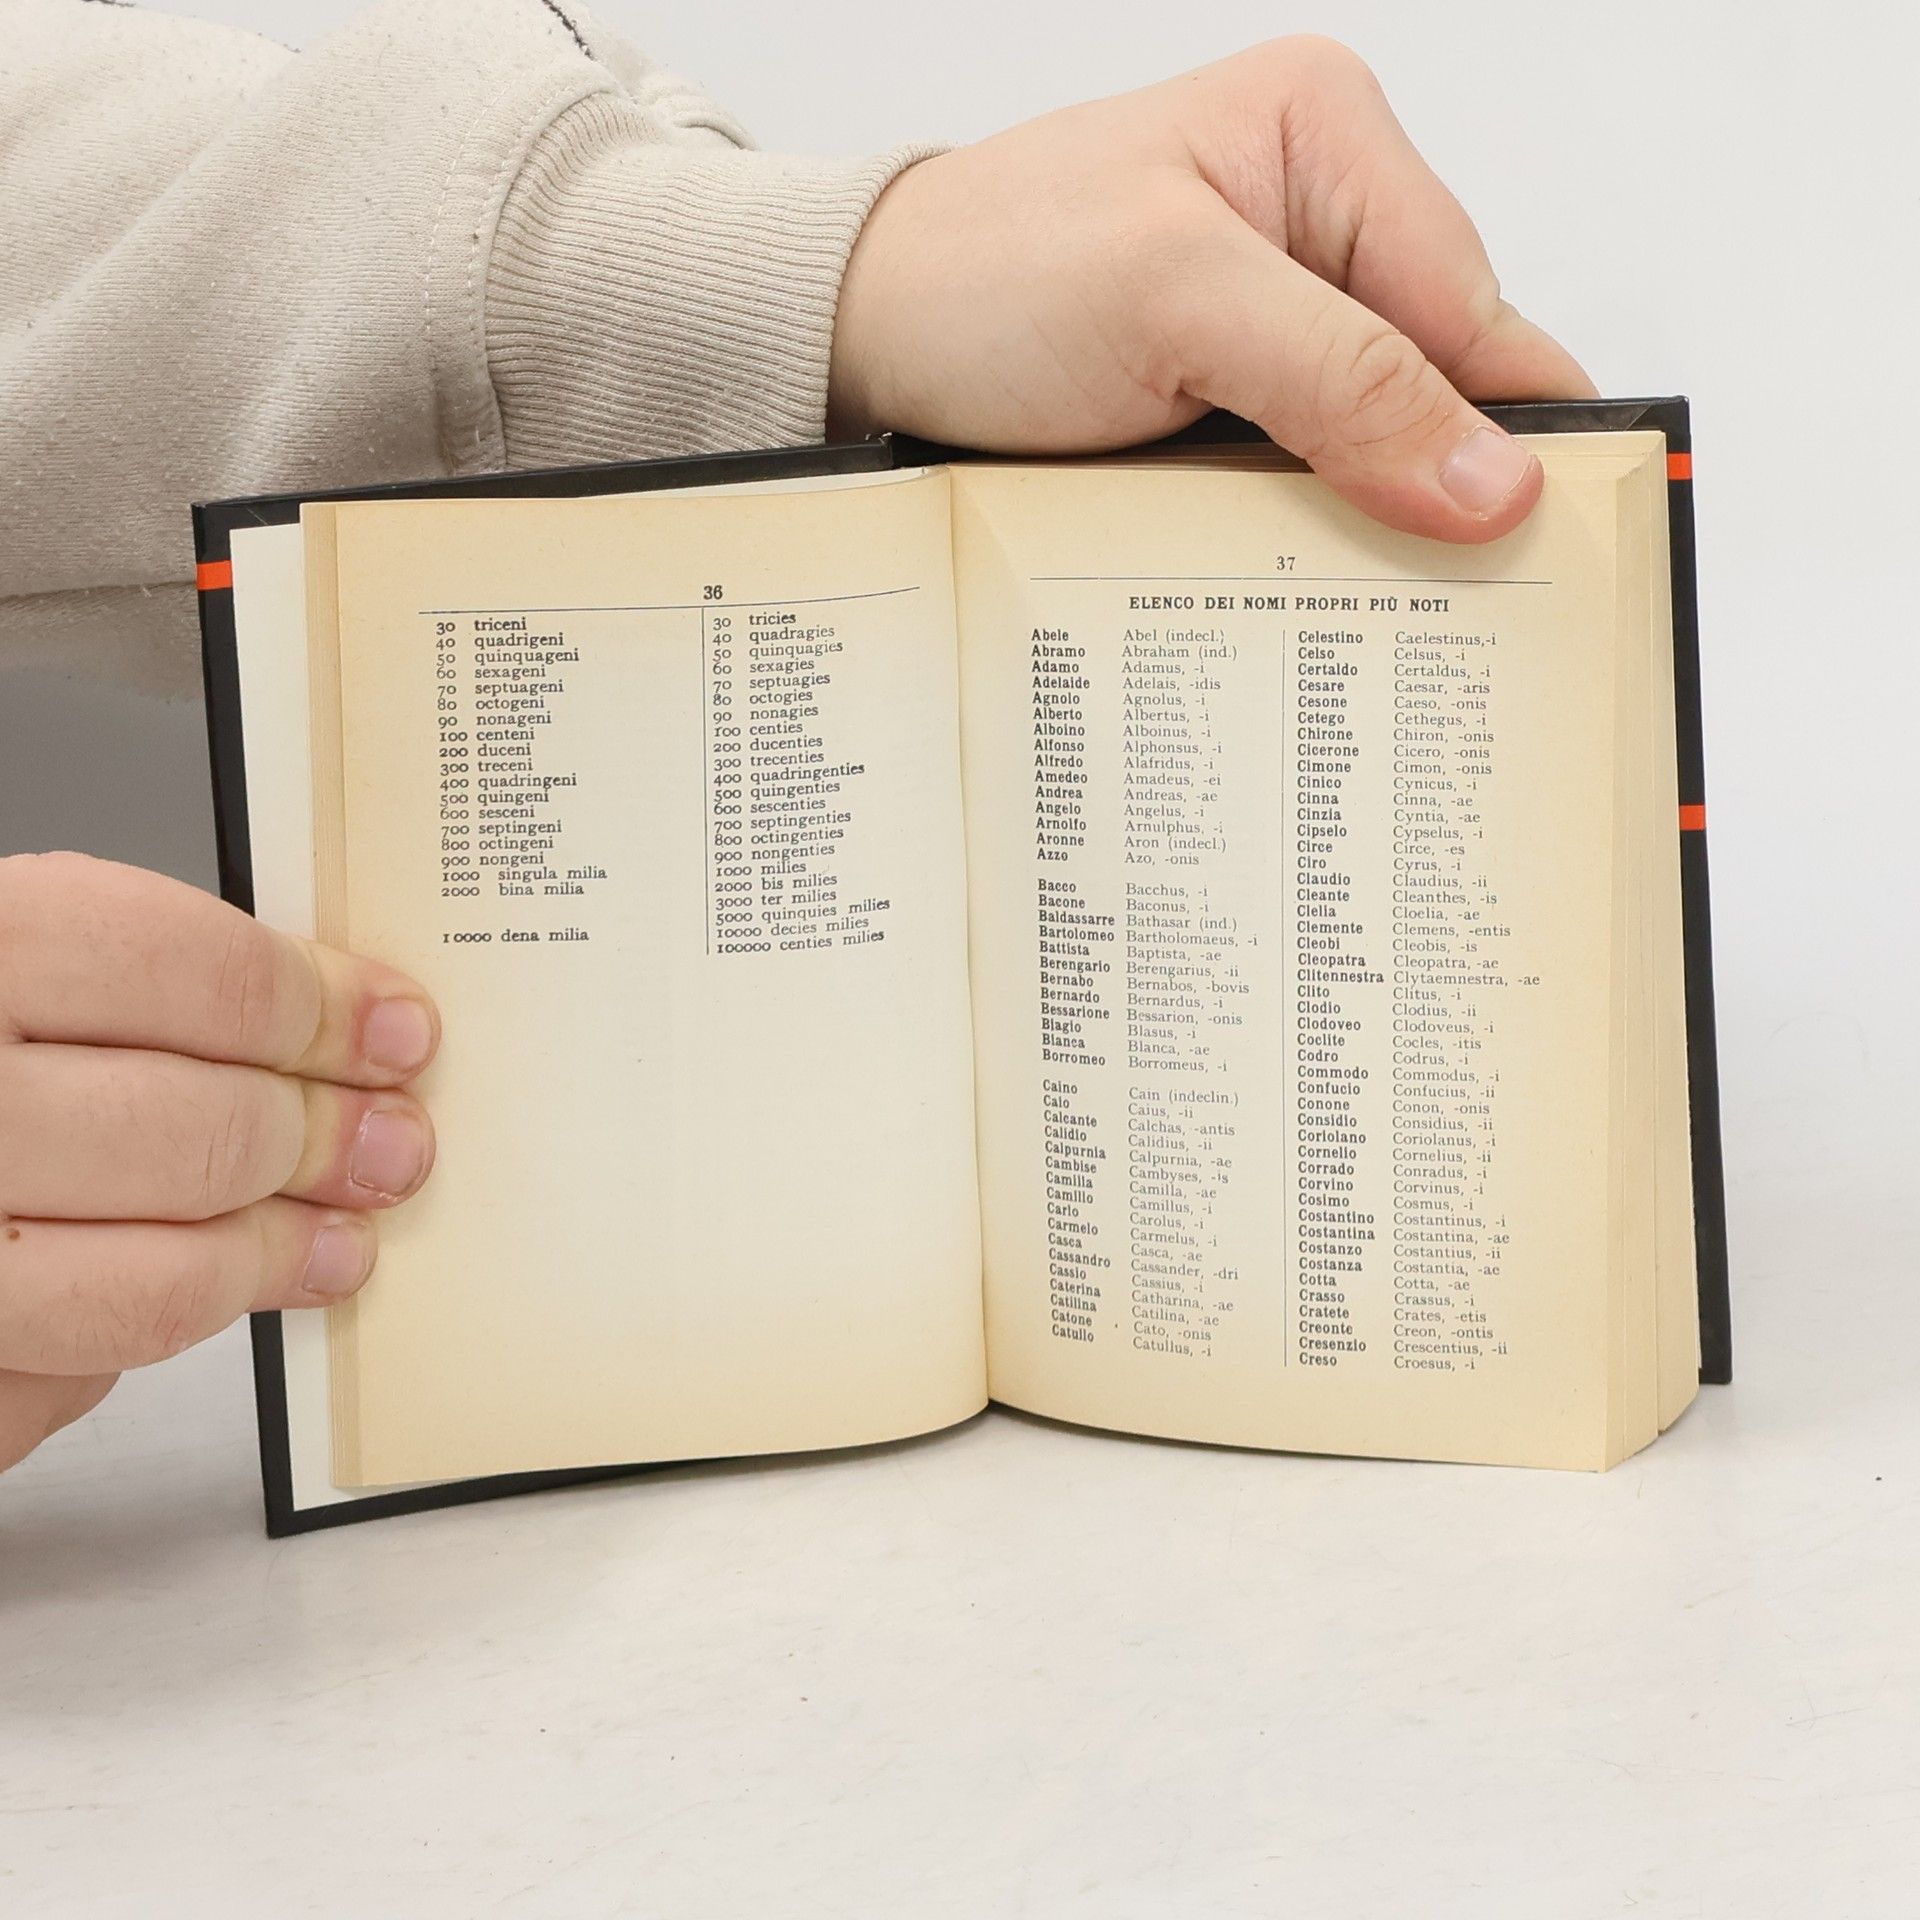 36
30 triceni
40 quadrigeni
50 quinquageni
60 sexageni
70 septuageni
80 octogeni
90 nonageni
100 centeni
200 duceni
300 treceni
400 quadringeni
500 quingeni
600 sesceni
700 septingeni
800 octingeni
900 nongeni
1000 singula milia
2000 bina milia
10000 dena milia
30 tricies
40 quadragies
50 quinquagies
60 sexagies
70 septuagies
80 octogies
90 nonagies
100 centies
200 ducenties
300 trecenties
400 quadringenties
500 quingenties
600 sescenties
700 septingenties
800 octingenties
900 nongenties
1000 milies
2000 bis milies
3000 ter milies
5000 quinquies milies
10000 decies milies
100000 centies milies
37
ELENCO DEI NOMI PROPRI PIÙ NOTI
Abele Abel (indecl.)
Abramo Abraham (ind.)
Adamo Adamus, -i
Adelaide Adelais, -idis
Agnolo Agnolus, -i
Alberto Albertus, -i
Alboino Alboinus, -i
Alfonso Alphonsus, -i
Alfredo Alafridus, -i
Amedeo Amadeus, -ei
Andrea Andreas, -ae
Angelo Angelus, -i
Arnolfo Arnulphus, -i
Aronne Aron (indecl.)
Azzo Azo, -onis
Bacco Bacchus, -i
Bacone Baconus, -i
Baldassarre Bathasar (ind.)
Bartolomeo Bartholomaeus, -i
Battista Baptista, -ae
Berengario Berengarius, -ii
Bernabo Bernabos, -bovis
Bernardo Bernardus, -i
Bessarione Bessarion, -onis
Biagio Blasus, -i
Bianca Blanca, -ae
Borromeo Borromeus, -i
Caino Cain (indeclin.)
Caio Caius, -ii
Calcante Calchas, -antis
Calidio Calidius, -ii
Calpurnia Calpurnia, -ae
Cambise Cambyses, -is
Camilla Camilla, -ae
Camillo Camillus, -i
Carlo Carolus, -i
Carmelo Carmelus, -i
Casca Casca, -ae
Cassandro Cassander, -dri
Cassio Cassius, -i
Caterina Catharina, -ae
Catilina Catilina, -ae
Catone Cato, -onis
Catullo Catullus, -i
Celestino Caelestinus,-i
Celso Celsus, -i
Certaldo Certaldus, -i
Cesare Caesar, -aris
Cesone Caeso, -onis
Cetego Cethegus, -i
Chirone Chiron, -onis
Cicerone Cicero, -onis
Cimone Cimon, -onis
Cinico Cynicus, -i
Cinna Cinna, -ae
Cinzia Cyntia, -ae
Cipselo Cypselus, -i
Circe Circe, -es
Ciro Cyrus, -i
Claudio Claudius, -ii
Cleante Cleanthes, -is
Clelia Cloelia, -ae
Clemente Clemens, -entis
Cleobi Cleobis, -is
Cleopatra Cleopatra, -ae
Clitennestra Clytaemnestra, -ae
Clito Clitus, -i
Clodio Clodius, -ii
Clodoveo Clodoveus, -i
Coclite Cocles, -itis
Codro Codrus, -i
Commodo Commodus, -i
Confucio Confucius, -ii
Conone Conon, -onis
Considio Considius, -ii
Coriolano Coriolanus, -i
Cornelio Cornelius, -ii
Corrado Conradus, -i
Corvino Corvinus, -i
Cosimo Cosmus, -i
Costantino Costantinus, -i
Costantina Costantina, -ae
Costanzo Costantius, -ii
Costanza Costantia, -ae
Cotta Cotta, -ae
Crasso Crassus, -i
Cratete Crates, -etis
Creonte Creon, -ontis
Cresenzio Crescentius, -ii
Creso Croesus, -i